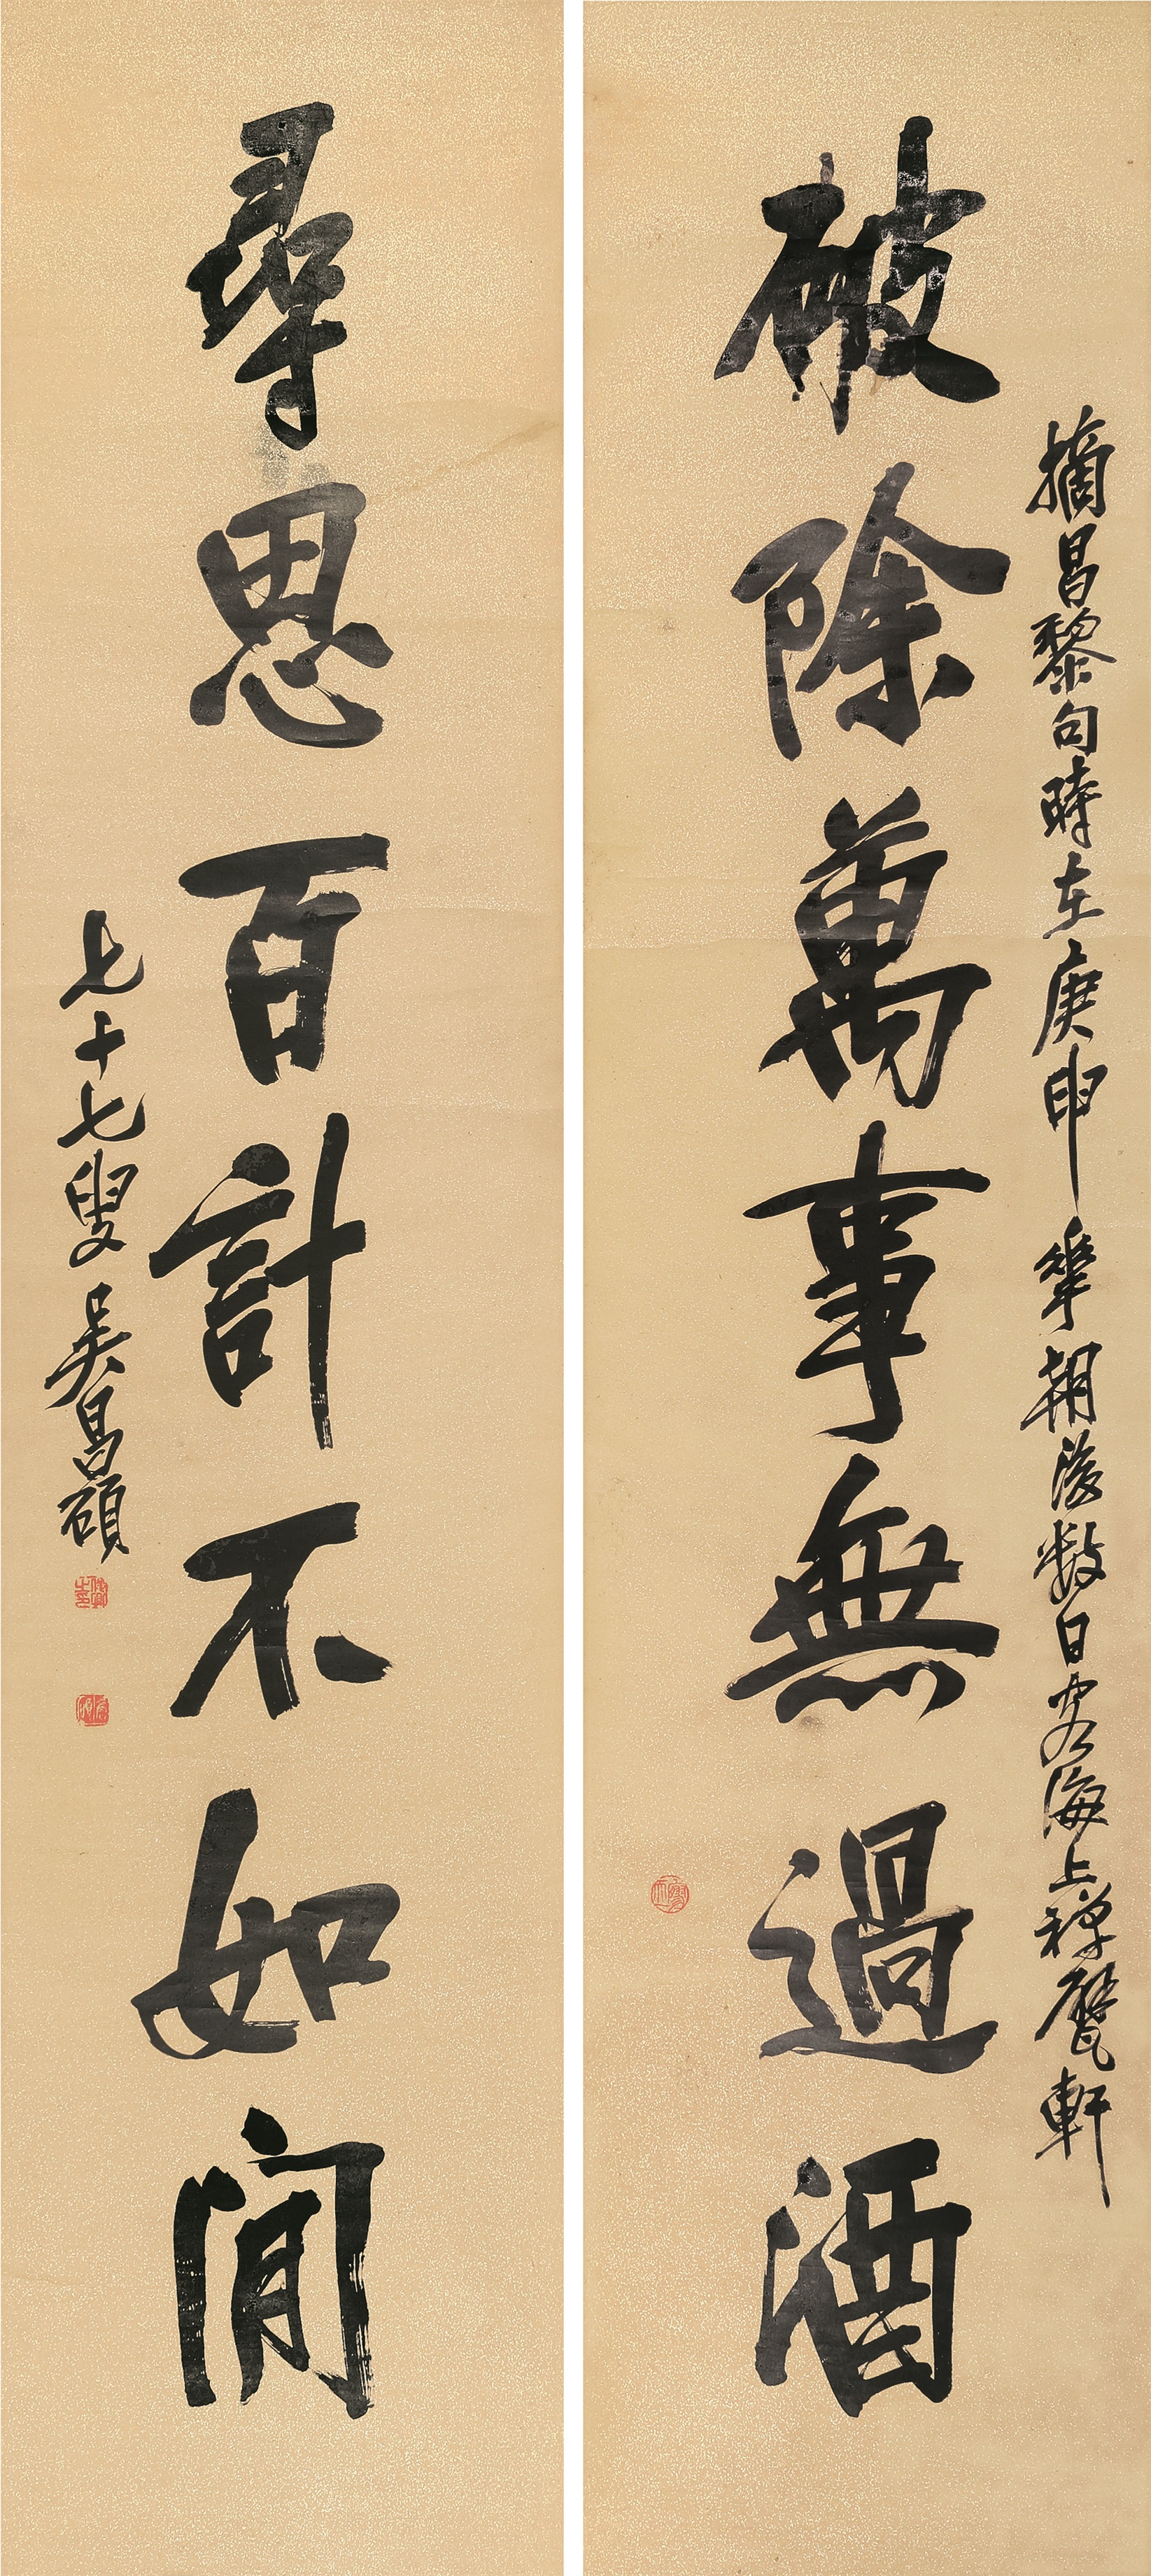 摘昌黎句時在庚申華朝後數日客海上禪甓軒
破除萬事無過酒
尋思百計不如閒
七十七叟吳昌碩